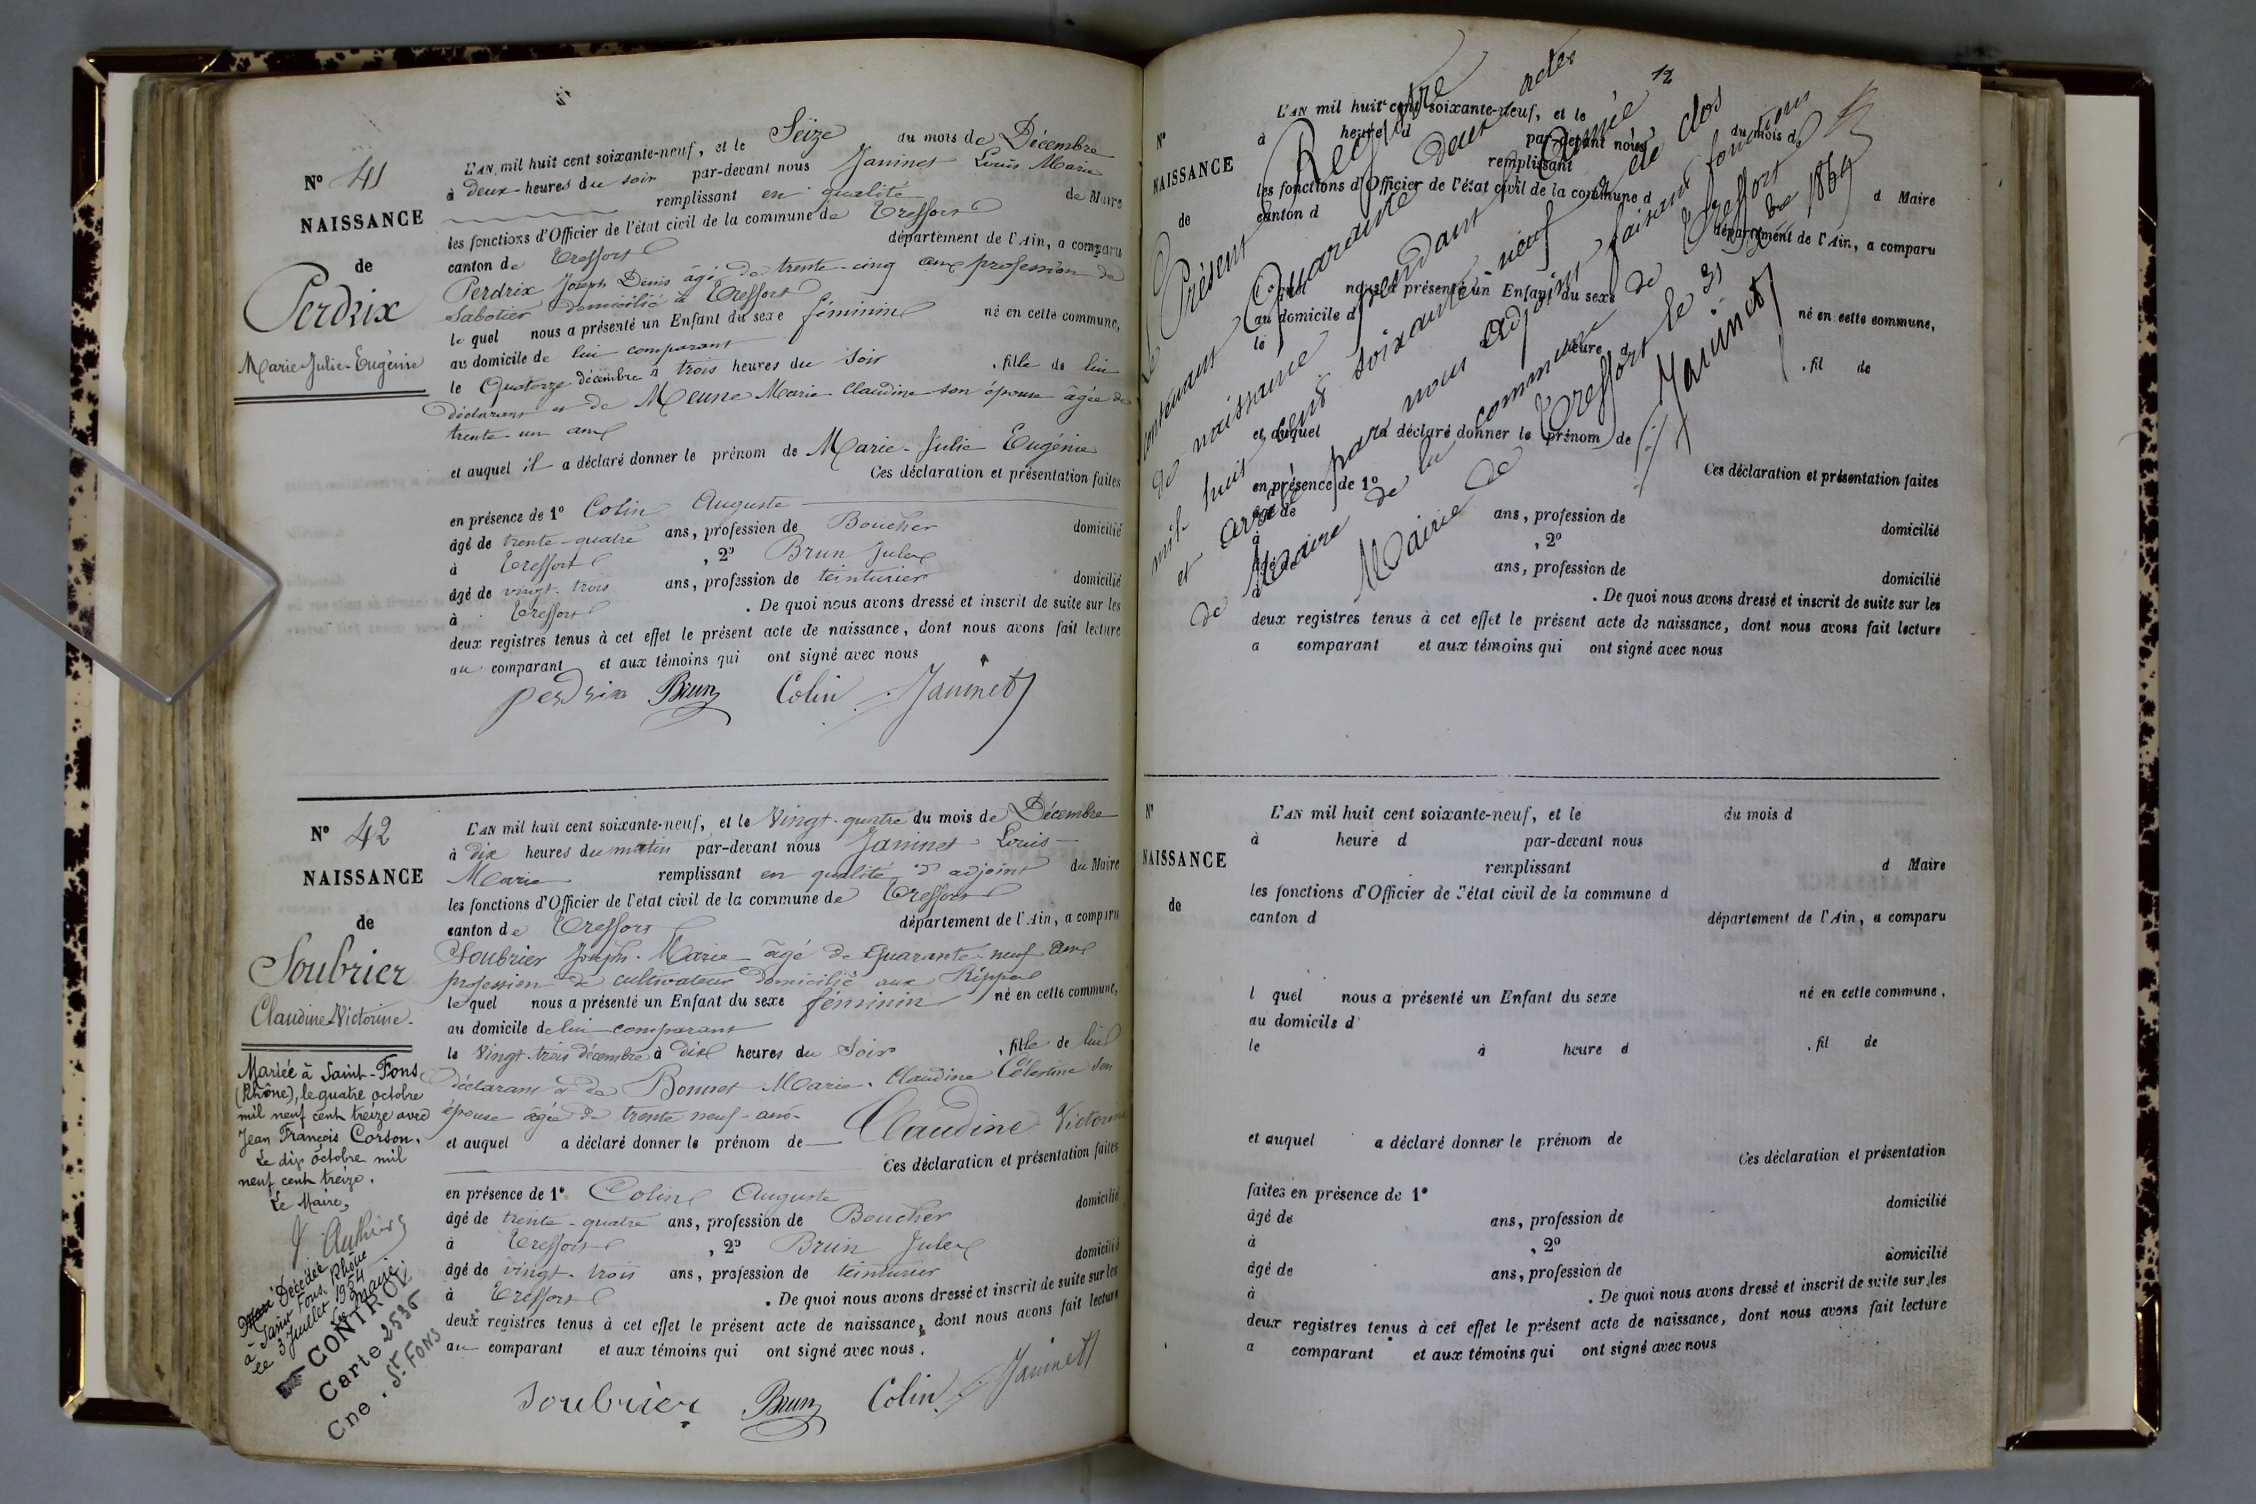 N° 41
NAISSANCE
de
Perdrix
Marie-Julie-Eugénie
L'AN mil huit cent soixante-neuf, et le Seize du mois de Décembre
à deux heures du soir par-devant nous Janinet Louis Marie
remplissant en qualité de Maire
les fonctions d'Officier de l'état civil de la commune de Treffort
canton de Treffort département de l'Ain, a comparu
Perdrix Joseph Denis âgé de trente-cinq ans profession de
Sabotier domicilié à Treffort
le quel nous a présenté un Enfant du sexe féminin né en cette commune,
au domicile de lui comparant
le Quatorze décembre à trois heures du Soir , fille de lui
déclarant et de Meune Marie Claudine son épouse âgée de
trente-un ans
et auquel il a déclaré donner le prénom de Marie-Julie Eugénie
Ces déclaration et présentation faites
en présence de 1° Colin Auguste
âgé de trente-quatre ans, profession de Boucher domicilié
à Treffort , 2° Brun Jules
âgé de vingt-trois ans, profession de teinturier domicilié
à Treffort . De quoi nous avons dressé et inscrit de suite sur les
deux registres tenus à cet effet le présent acte de naissance, dont nous avons fait lecture
au comparant et aux témoins qui ont signé avec nous
perdrix Brun Colin Janinet
N° 42
NAISSANCE
de
Soubrier
Claudine-Victorine.
Mariée à Saint-Fons
(Rhône), le quatre octobre
mil neuf cent treize avec
Jean François Corson.
Le dix octobre mil
neuf cent treize.
Le Maire,
Décédée
à Saint Fons, Rhône
le 3 Juillet 1954
Le Maire.
CONTROL
Carte 2536
Cne . St FONS
L'AN mil huit cent soixante-neuf, et le Vingt-quatre du mois de Décembre
à dix heures du matin par-devant nous Janinet Louis
Marie remplissant en qualité d'adjoint du Maire
les fonctions d'Officier de l'état civil de la commune de Treffort
canton de Treffort département de l'Ain, a comparu
Soubrier Joseph-Marie âgé de Quarante-neuf ans
profession de cultivateur domicilié aux Rippes
le quel nous a présenté un Enfant du sexe féminin né en cette commune,
au domicile de lui comparant
le Vingt-trois décembre à dix heures du Soir , fille de lui
déclarant et de Bonnet Marie Claudine Célestine son
épouse âgée de trente neuf ans
et auquel a déclaré donner le prénom de Claudine Victorine
Ces déclaration et présentation faites
en présence de 1° Colin Auguste domicilié
âgé de trente-quatre ans, profession de Boucher
à Treffort , 2° Brun Jules domicilié
âgé de vingt-trois ans, profession de teinturier
à Treffort . De quoi nous avons dressé et inscrit de suite sur les
deux registres tenus à cet effet le présent acte de naissance, dont nous avons fait lecture
au comparant et aux témoins qui ont signé avec nous.
Soubrier Brun Colin Janinet
N°
NAISSANCE
de
L'AN mil huit cent soixante-neuf, et le du mois d
à heure d par-devant nous
remplissant d Maire
les fonctions d'Officier de l'état civil de la commune d
canton d département de l'Ain, a comparu
l quel nous a présenté un Enfant du sexe né en cette commune,
au domicile d
le heure d , fil de
et auquel a déclaré donner le prénom de
Ces déclaration et présentation faites
en présence de 1°
âgé de ans, profession de domicilié
à , 2°
âgé de ans, profession de domicilié
à . De quoi nous avons dressé et inscrit de suite sur les
deux registres tenus à cet effet le présent acte de naissance, dont nous avons fait lecture
a comparant et aux témoins qui ont signé avec nous
Le Présent Registre
contenant Quarante deux actes
de naissance pendant l'année
mil huit cent soixante neuf a été clos
et arrêté par nous Adjoint faisant fonctions
de Maire de la commune de Treffort
Mairie de Treffort le 31 Xbre 1869
Janinet
N°
NAISSANCE
de
L'AN mil huit cent soixante-neuf, et le du mois d
à heure d par-devant nous
remplissant d Maire
les fonctions d'Officier de l'état civil de la commune d
canton d département de l'Ain, a comparu
l quel nous a présenté un Enfant du sexe né en cette commune,
au domicile d
le à heure d , fil de
et auquel a déclaré donner le prénom de
Ces déclaration et présentation
faites en présence de 1° domicilié
âgé de ans, profession de
à , 2° domicilié
âgé de ans, profession de
à . De quoi nous avons dressé et inscrit de suite sur les
deux registres tenus à cet effet le présent acte de naissance, dont nous avons fait lecture
a comparant et aux témoins qui ont signé avec nous